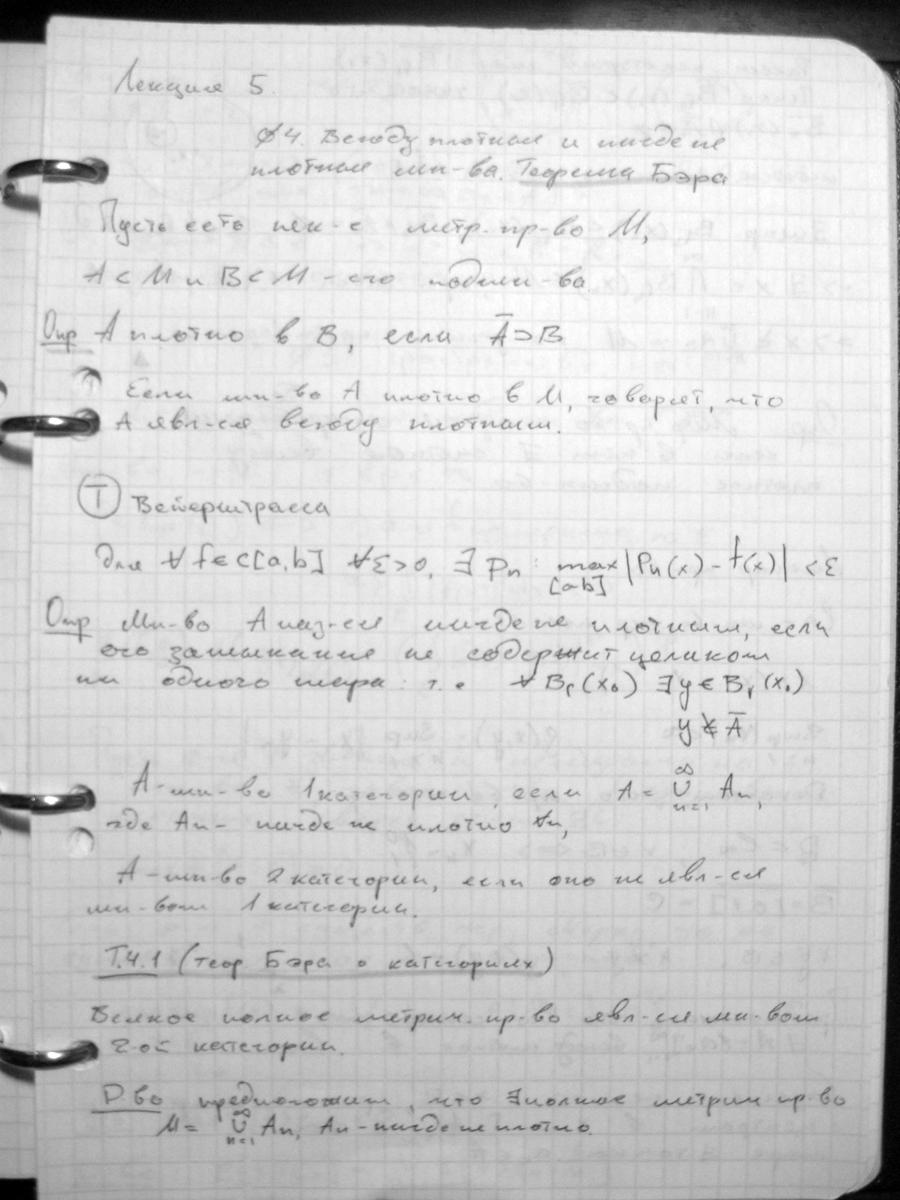 Лекция 5.
§4. Всюду плотные и нигде не
плотные мн-ва. Теорема Бэра
Пусть есть нек-е метр. пр-во M,
A ⊂ M и B ⊂ M - его подмн-ва.
Опр A плотно в B, если Ā ⊃ B
Если мн-во A плотно в M, говорят, что
A явл-ся всюду плотным.
Ⓣ Вейерштрасса
для ∀ f ∈ C[a,b] ∀ε>0, ∃ Pn : max |Pn(x) - f(x)| < ε
[a b]
Опр Мн-во A наз-ся нигде не плотным, если
его замыкание не содержит целиком
ни одного шара: т.е ∀ Br(x₀) ∃y ∈ Br(x₀)
y ∉ Ā
A - мн-во 1 категории, если A = ∞∪n=1 An,
где An - нигде не плотно ∀n,
A - мн-во 2 категории, если оно не явл-ся
мн-вом 1 категории.
Т.4.1 (теор Бэра о категориях)
Всякое полное метрич. пр-во явл-ся мн-вом
2-ой категории.
Д-во предположим, что ∃ полное метрич пр-во
M = ∞∪n=1 An, An - нигде не плотно.